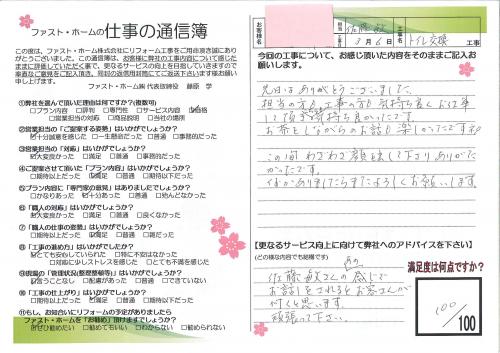 ファスト・ホームの仕事の通信簿
この度は、ファスト・ホーム株式会社にリフォーム工事をご用命頂き誠にあり
がとうございました。この通信簿は、お客様に弊社の工事内容について感じた
ままに評価していただく事で、更なるサービスの向上を目指していきますので
率直なご意見をご記入頂き、同封の返信用封筒にてご返送下さいます様お願い
申し上げます。
ファスト・ホーム㈱ 代表取締役 藤原 学
①弊社を選んで頂いた理由は何ですか?(複数可)
□プラン内容 □評判 □専門性 □サービス内容 □価格
□営業担当の対応 □商品説明 □当社の場所
②営業担当の「ご提案する姿勢」はいかがでしょうか?
□十分誠意を感じた □一生懸命だった □普通 □事務的だった
③営業担当の「対応」はいかがでしょうか?
□大変良かった □満足 □普通 □事務的だった
④ご提案させて頂いた「プラン内容」はいかがでしょうか?
□期待以上だった □満足 □普通 □期待以下だった
⑤プラン内容に「専門家の意見」はありましたでしょうか?
□かなりあった □十分あった □普通 □殆んどなかった
⑥「職人の対応」はいかがでしょうか?
□大変良かった □満足 □普通 □良くなかった
⑦「職人の仕事の姿勢」はいかがでしょうか?
□期待以上だった □満足 □普通 □雑だった
⑧「工事の進め方」はいかがでしたか?
□とても安心していられた □特に不安はなかった
□対応に少しストレスを感じた □とても不満を感じた
⑨現場の「管理状況(整理整頓等)」はいかがでしょうか?
□言うことなし □配慮があった □普通 □できていなかった
⑩「工事の仕上がり」はいかがでしょうか?
□期待以上だった □満足 □普通 □期待以下だった
⑪もし、お知り合いにリフォームの予定がありましたら
ファスト・ホームを「お勧め」頂けますでしょうか?
□ぜひ勧めたい □勧めてもいい □わからない □勧められない
お客様名
担当 佐藤 敏
工期 3月6日
トイレ交換 工事
今回の工事について、お感じ頂いた内容をそのままご記入お
願いします。
先日はありがとうございました。
担当の方も工事の方も気持ち良くお仕事
して頂き気持ち良かったです。
お茶をしながらのお話も楽しかったですネ
この間わざわざ顔を見せて下さりありがた
かったです。
なにかありましたらまたよろしくお願いします。
【更なるサービス向上に向けて弊社へのアドバイスを下さい】
(どの様な内容でも結構です)
佐藤敏さんの感じで
お話しをされるとお客さんが
付くと思います。
頑張って下さい。
満足度は何点ですか?
100/100